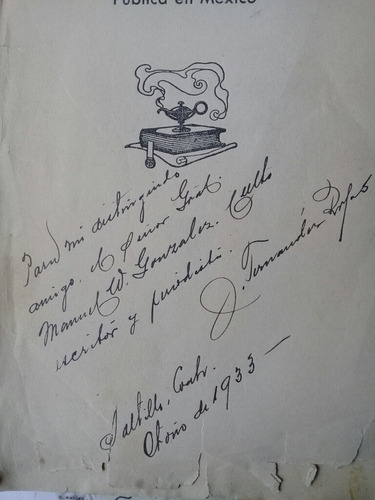 Pública en México
Para mi distinguido
amigo, el Señor Gral.
Manuel W. Gonzalez. Culto
escritor y periodista.
J. Fernández Rojas
Saltillo, Coah.
Otoño de 1933